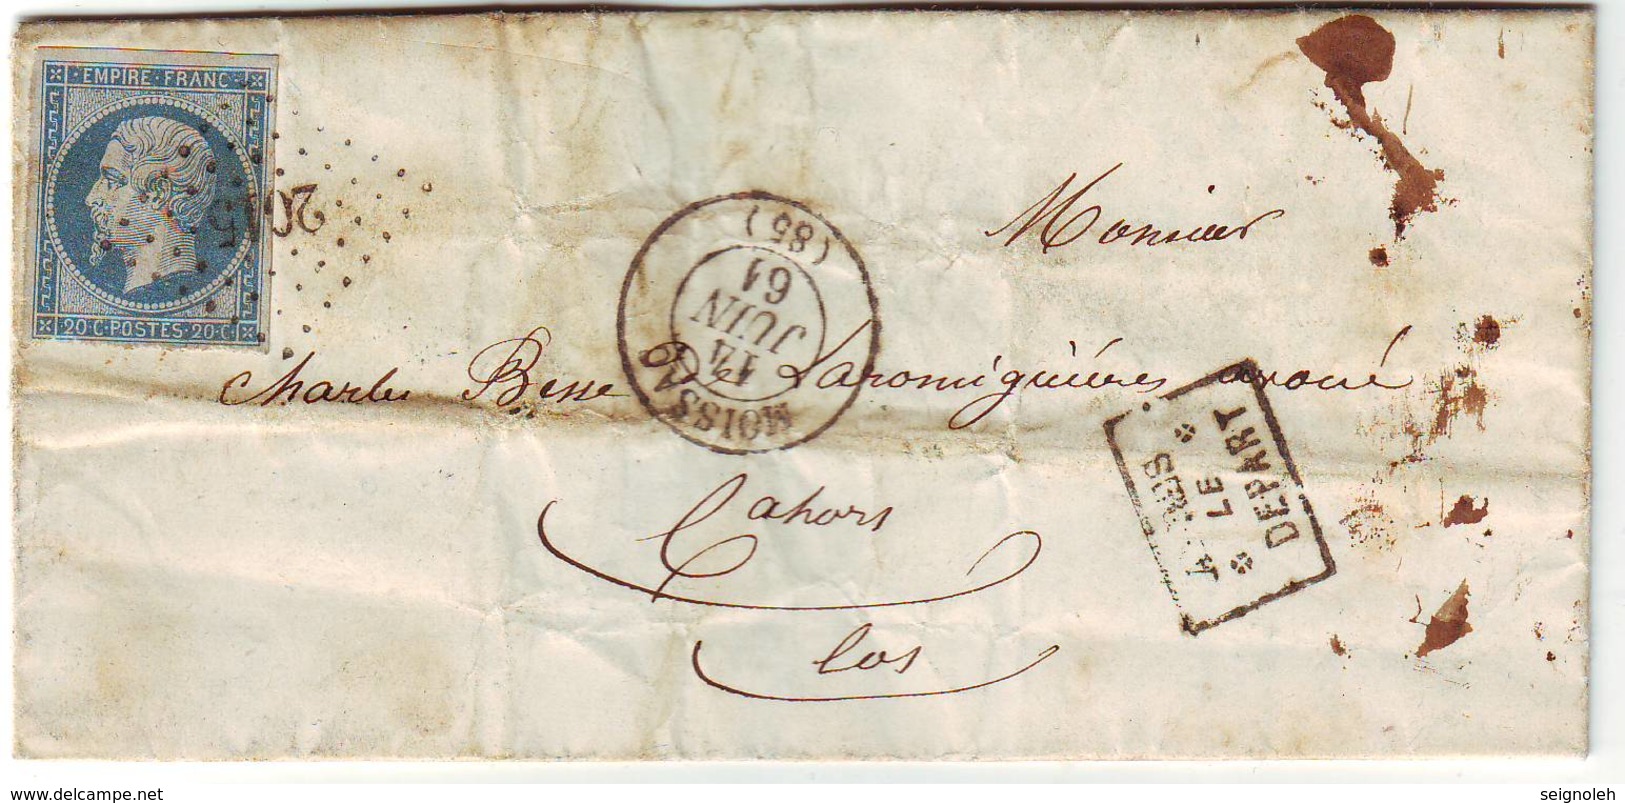 EMPIRE·FRANC
20·C·POSTES·20·C
MOISSAC
14
JUIN
61
Monsieur
Charles Besse Laromiguières avoué
Cahors
Los
APRES
LE
DEPART
www.delcampe.net
seignoleh